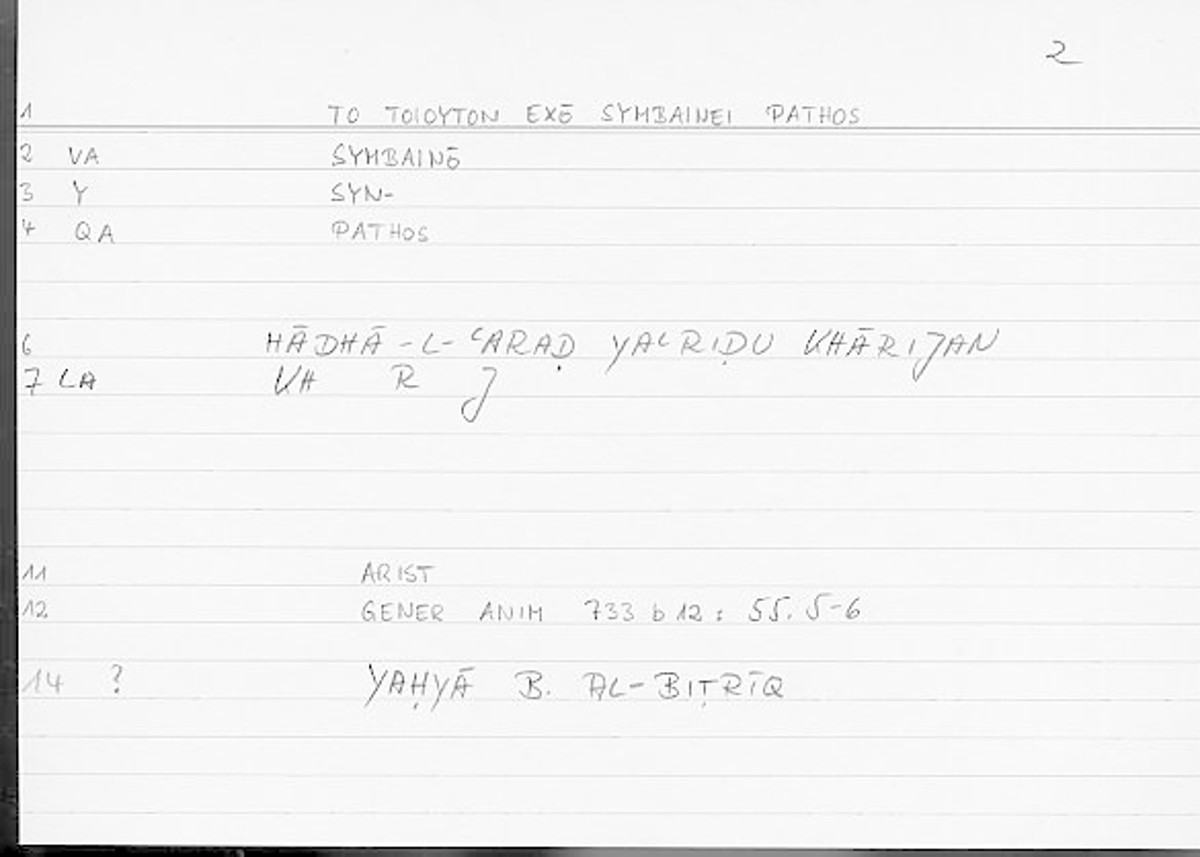 2
1 TO TOIOYTON EXŌ SYMBAINEI PATHOS
2 VA SYMBAINŌ
3 Y SYN-
4 QA PATHOS
6 HĀDHĀ-L-ʿARAḌ YAʿRIḌU KHĀRIJAN
7 LA KH R J
11 ARIST
12 GENER ANIM 733 b 12 : 55. 5-6
14 ? YAḤYĀ B. AL-BIṬRĪQ